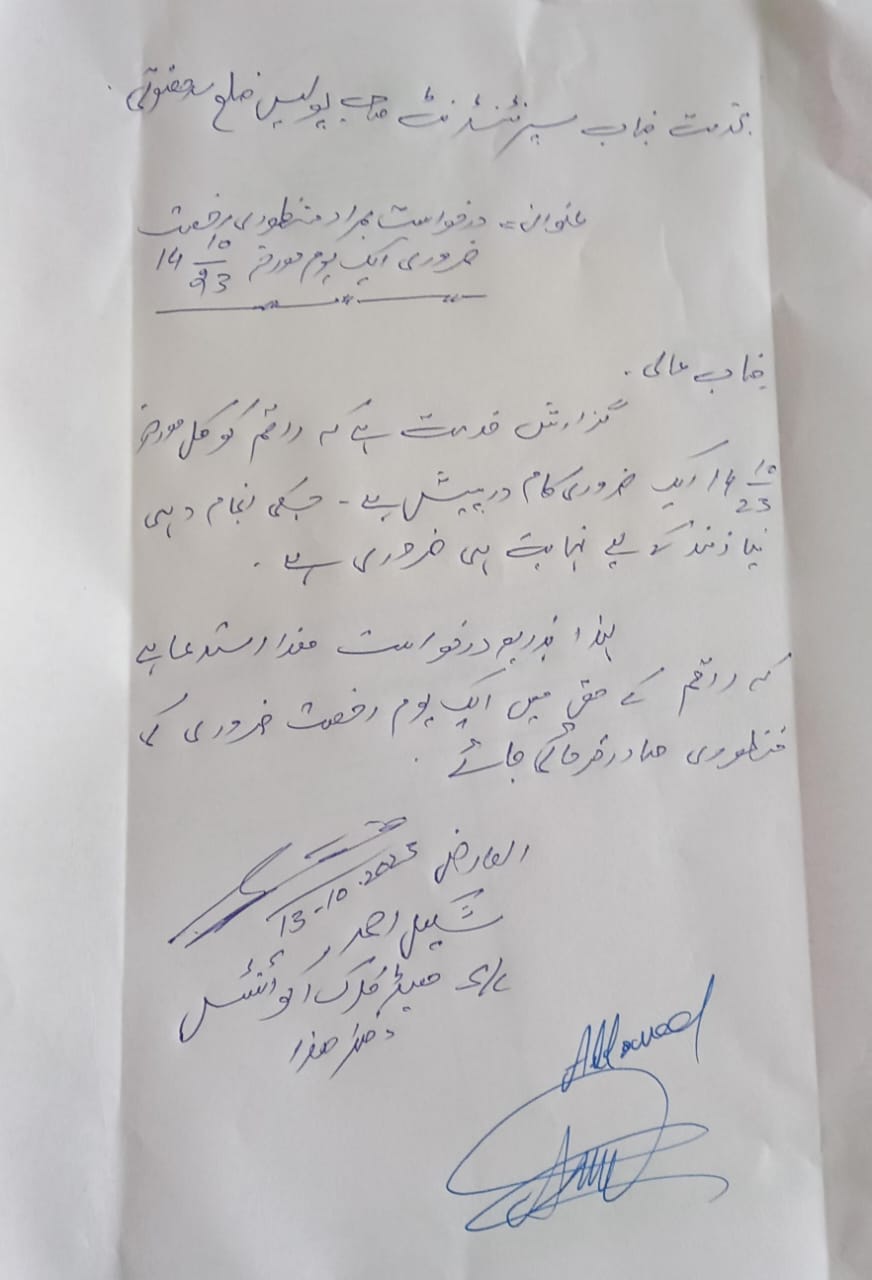 بخدمت جناب سپرنٹنڈنٹ صاحب پولیس ضلع
عنوان = درخواست بمراد منظوری رخصت
ضروری ایک یوم مورخہ 14 10/23
جناب عالی .
گزارش خدمت ہے کہ راقم کو کل مورخہ
14 10/23 ایک ضروری کام درپیش ہے - جسکی انجام دہی
نیازمند کے لیے نہایت ہی ضروری ہے .
لہذا بذریعہ درخواست ھذا استدعا ہے
کہ راقم کے حق میں ایک یوم رخصت ضروری کی
منظوری صادر فرمائی جائے .
العارض 13-10-2023
شکیل احمد
ہیڈ کلرک اکوائنٹس
دفتر ھذا
Allowed